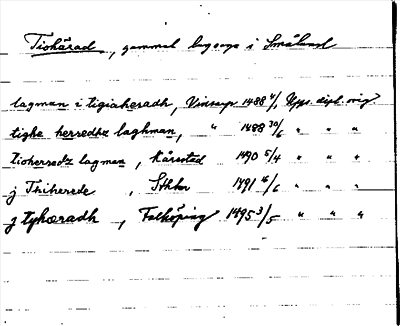 Tiohärad, gammal lagsaga i Småland
lagman i tigiaheradh, Vinstorp 1488 4/1 Upps. dipl. orig.
tighe herredhz laghman, " 1488 30/6 " " "
tioherradz lagman, Kårestad 1490 5/4 " " "
j Tiiherede, Sthlm 1491 16/6 " " "
j tyhæradh, Falköping 1495 3/5 " " "